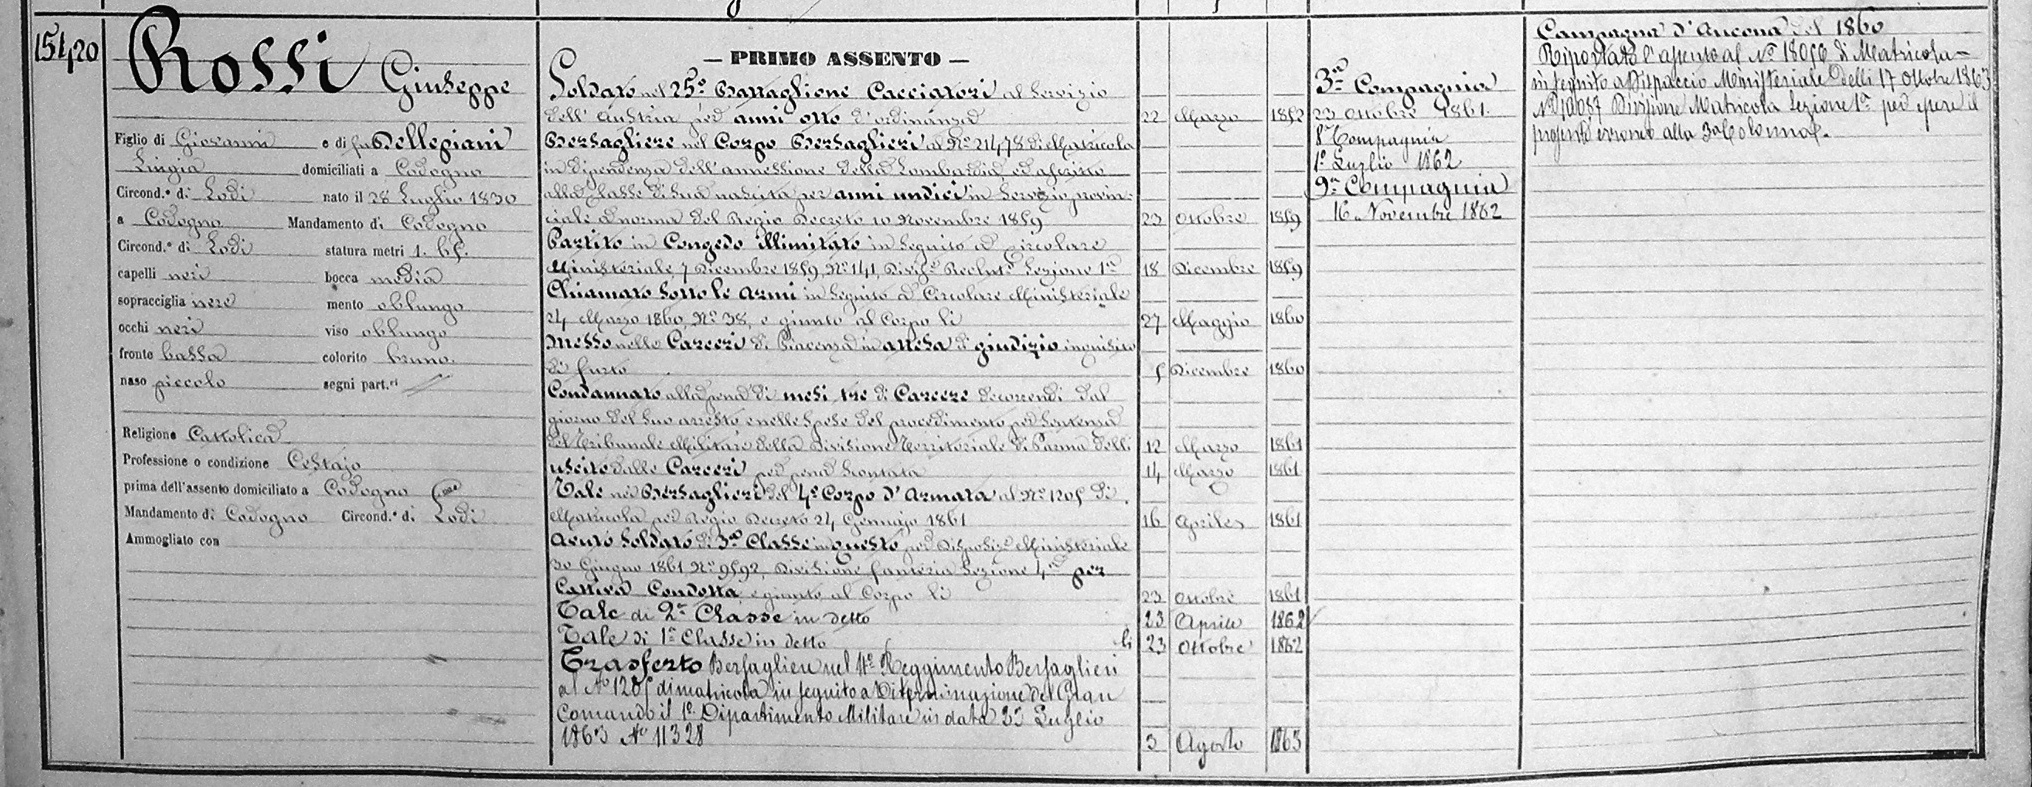 15420
Rossi Giuseppe
Figlio di Giovanni e di fu Dellepiani
Luigia domiciliati a Codogno
Circond.° di Lodi nato il 28 Luglio 1830
a Codogno Mandamento di Codogno
Circond.° di Lodi statura metri 1. 65.
capelli neri bocca media
sopracciglia nere mento oblungo
occhi neri viso oblungo
fronte bassa colorito bruno.
naso piccolo segni part.ri
Religione Cattolica
Professione o condizione Cestajo
prima dell'assento domiciliato a Codogno
Mandamento di Codogno Circond.° di Lodi
Ammogliato con
— PRIMO ASSENTO —
Soldato nel 25° Battaglione Cacciatori al Servizio
dell'Austria per anni otto d'ordinanza 22 Marzo 1852
Bersagliere nel Corpo Bersaglieri al N° 21478 di Matricola
in dipendenza dell'annessione della Lombardia ed ascritto
alla classe di sua nascita per anni undici in Servizio provin-
ciale a norma del Regio Decreto 10 Novembre 1859 23 Ottobre 1859
Partito in Congedo illimitato in seguito a Circolare
Ministeriale 7 Dicembre 1859, N° 141, Divis.e Reclut.o Sezione 1a 18 Dicembre 1859
Chiamato sotto le armi in seguito a Circolare Ministeriale
24 Marzo 1860, N° 38, e giunto al Corpo li 27 Maggio 1860
Messo nelle Carceri di Piacenza in attesa di giudizio inquisito
di furto 5 Dicembre 1860
Condannato alla pena di mesi tre di Carcere decorrendi dal
giorno del suo arresto e nelle spese del procedimento per Sentenza
del Tribunale Militare della Divisione Territoriale di Parma delli 12 Marzo 1861
uscito dalle Carceri per pena scontata 14 Marzo 1861
Tale nei Bersaglieri del 4° Corpo d'Armata al N° 1205 di
Matricola per Regio Decreto 24 Gennajo 1861 16 Aprile 1861
Avuto Soldato di 3a Classe in questo per Disposiz.e Ministeriale
30 Giugno 1861 N° 9592, Divisione fanteria Sezione 4a per
Cattiva Condotta e giunto al Corpo li 23 Ottobre 1861
Tale di 2a Classe in detto 23 Aprile 1862
Tale di 1a Classe in detto li 23 Ottobre 1862
Trasferto Bersagliere nel 4° Reggimento Bersaglieri
al N° 1205 di matricola in seguito a Determinazione del Gran
Comando il 1° Dipartimento Militare in data 23 Luglio
1863 N° 11328 3 Agosto 1863
3a Compagnia
23 Ottobre 1861.
8a Compagnia
1° Luglio 1862
9a Compagnia
16 Novembre 1862
Campagna d'Ancona del 1860
Riportato l'assento al N° 18056 di Matricola
in seguito a Dispaccio Ministeriale delli 17 Ottobre 1863
N° 10057 Divisione Matricola Sezione 1a per essere il
presente erroneo alla 3a Colonna.